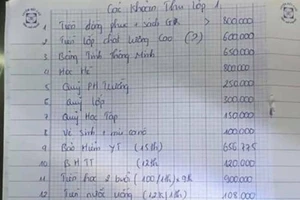 Các Khoản Thu Lớp 1
1 Tiền đồng phục + sách 800.000
2 Tiền lớp chất lượng Cao 500.000
3 Bảng Tính Thông Minh 650.000
4 Học Hè 800.000
5 Quỹ PH Trường 250.000
6 Quỹ Lớp 300.000
7 Quỹ Học Tập 150.000
8 Vệ Sinh 100.000
9 Bảo Hiểm YT (15th) 656.775
10 BHTT (12th) 120.000
11 Tiền học 2 buổi (100/1th) x 9 900.000
12 Tiền nước uống (12k/1th) 108.000